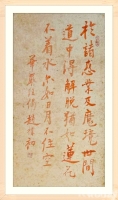 於諸惑業及魔境世間
道中得解脫猶如蓮花
不着水亦如日月不住空
華嚴經偈 趙樸初